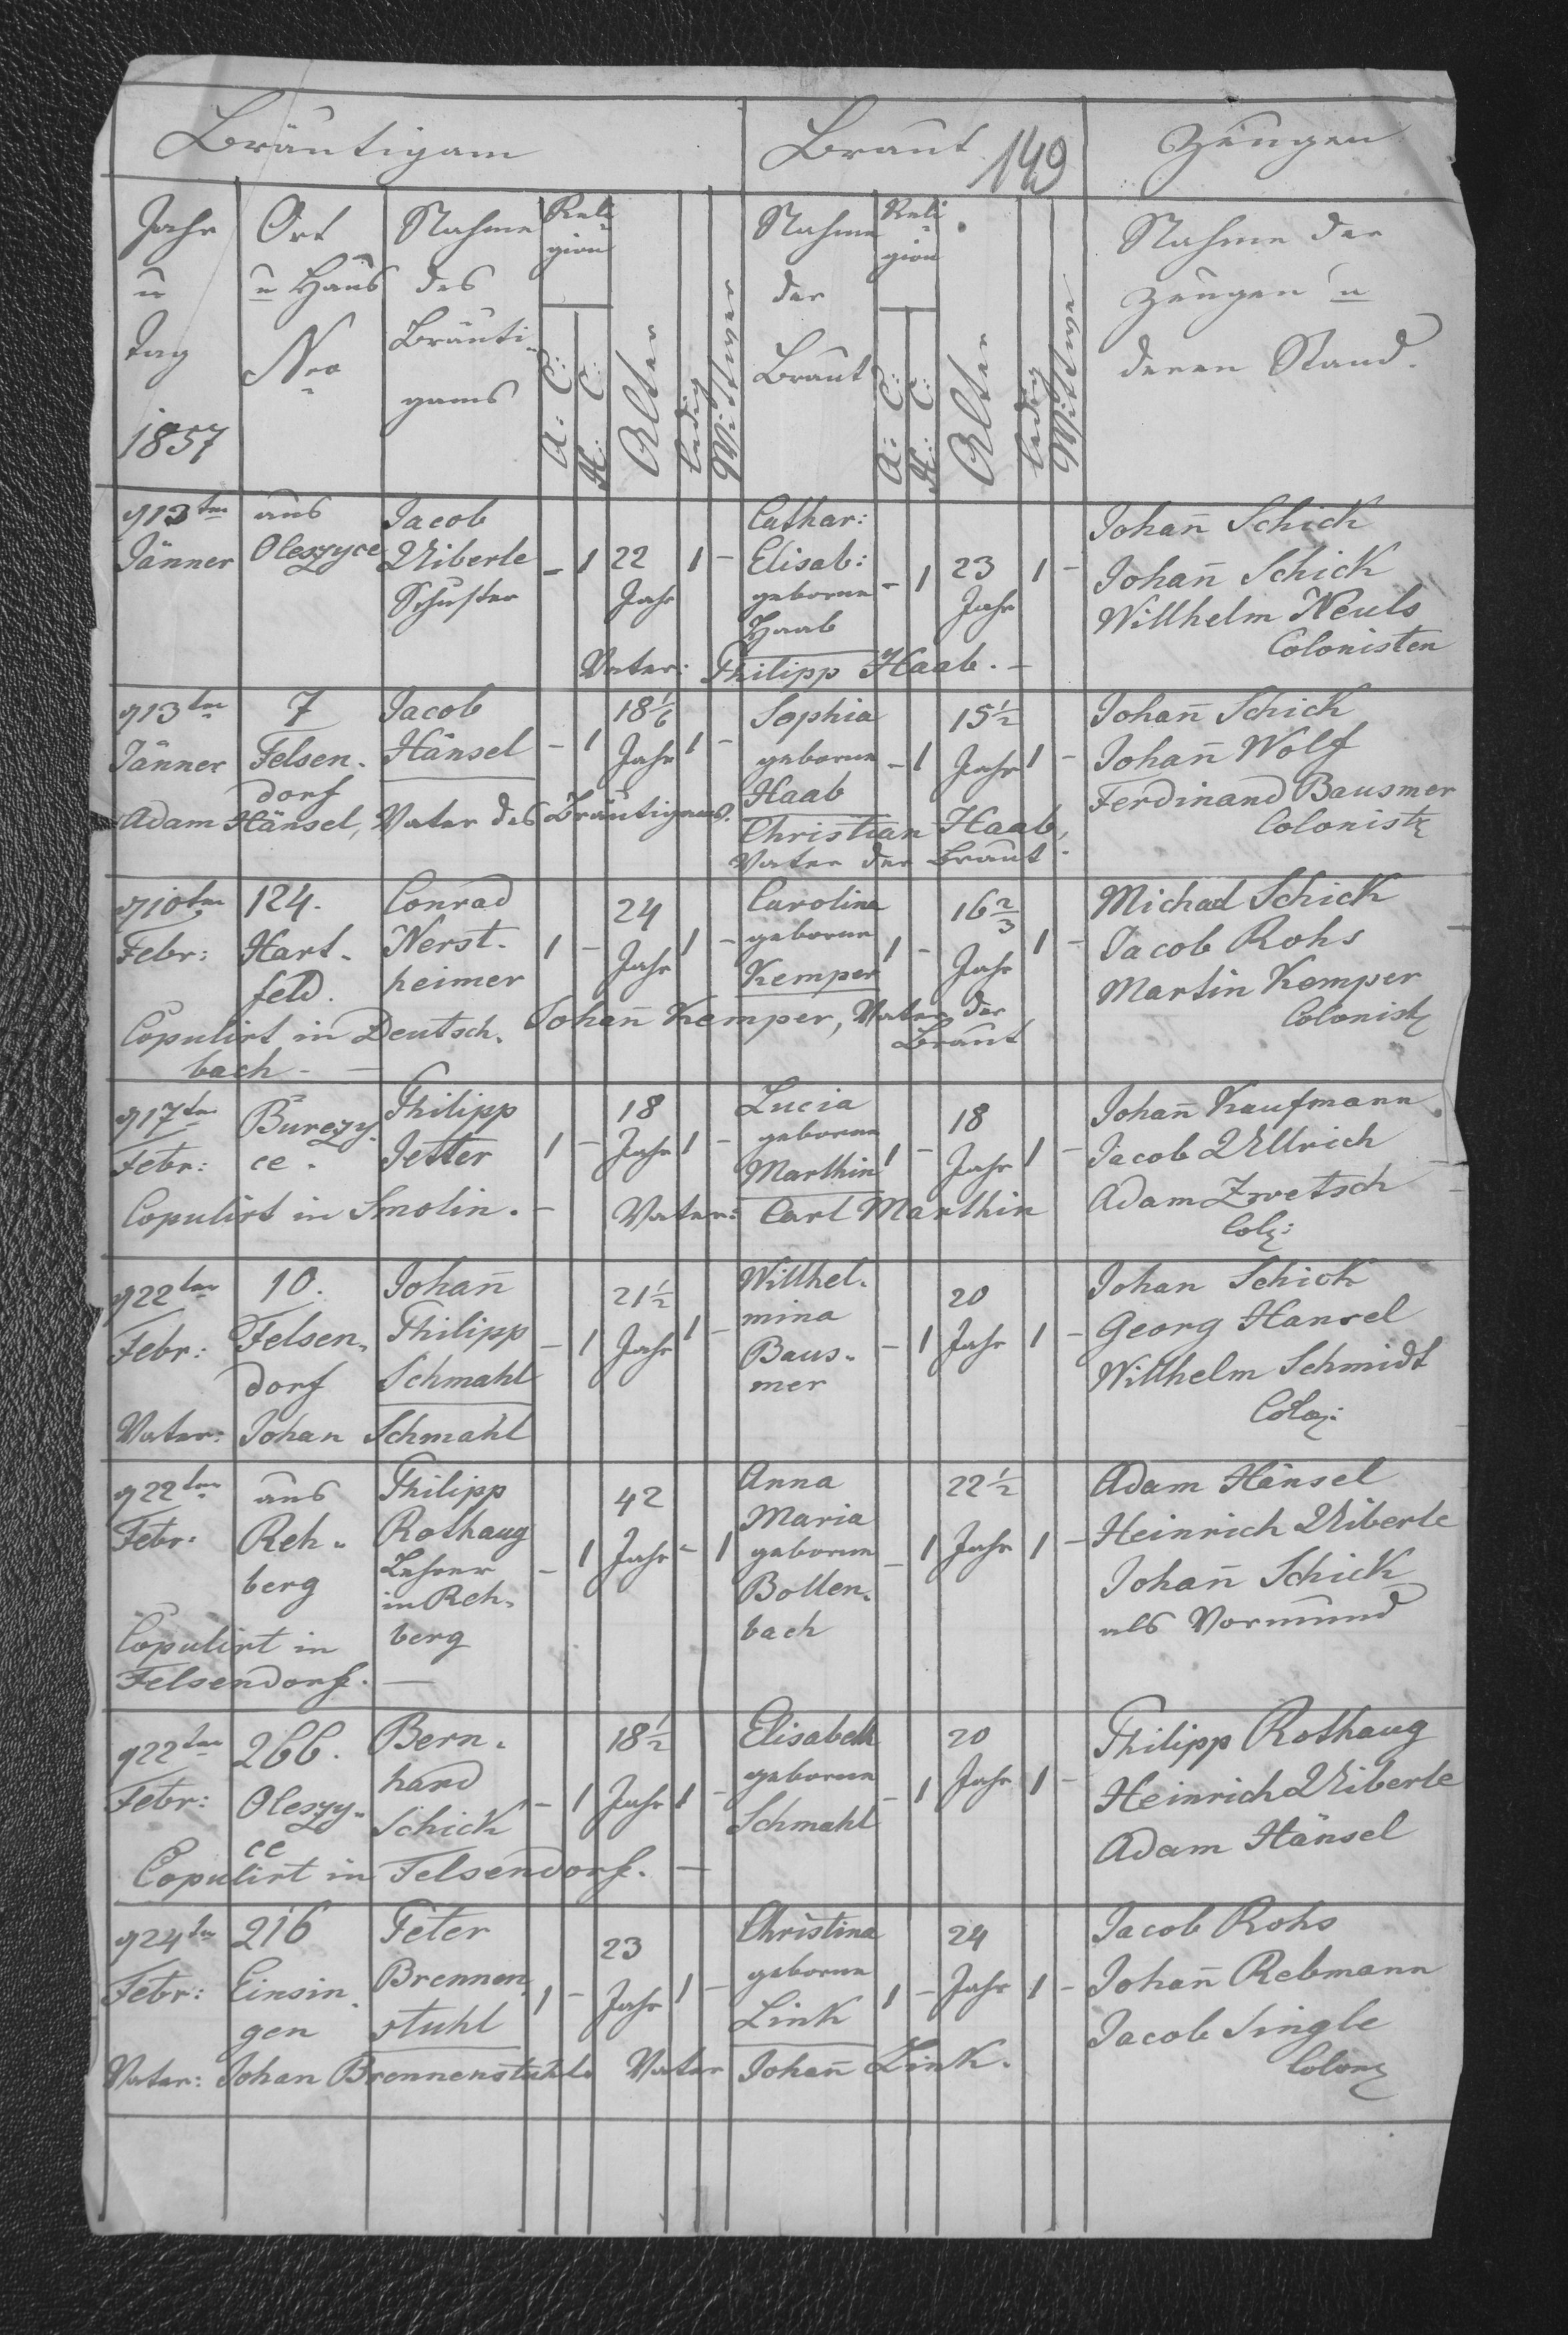 Bräutigam Braut 149 Zeugen
Jahr u Tag 1857
Ort u Haus Nro
Nahme des Bräuti- gams
Reli- gion
A: C:
H: C:
Alter
ledig
Wittwer
Nahme der Braut
Reli- gion
A: C:
H: C:
Alter
ledig
Wittwe
Nahme der
Zeugen u
deren Stand.
d 13ten aus Jacob Cathar: Johan̄ Schick
Jänner Oleszyce Uiberle - 1 22 1 - Elisab: - 1 23 1 - Johan̄ Schick
Schuster Jahr geborne Jahr Willhelm Neuls
Haab Colonisten
Vater: Philipp Haab. -
d 13ten 7 Jacob 18 1/6 Sophia 15 1/2 Johan̄ Schick
Jänner Felsen- Hänsel - 1 Jahr 1 - geborne - 1 Jahr 1 - Johan̄ Wolf
dorf Haab Ferdinand Bausmer
Adam Hänsel, Vater des Bräutigams. Christian Haab, Colonist
Vater der Braut
d 10ten 124. Conrad 24 Carolina 16 2/3 Michael Schick
Febr: Hart- Nerst- 1 - Jahr 1 - geborne 1 - Jahr 1 - Jacob Rohs
feld. heimer Kemper Martin Kemper
Copulirt in Deutsch- Johan̄ Kemper, Vater der Colonist
bach - - Braut
d 17ten Burczy- Philipp 18 Lucia 18 Johan̄ Kaufmann
Febr: ce. Jetter 1 - Jahr 1 - geborne 1 - Jahr 1 - Jacob Ullrich
Marthin Adam Zwetsch
Copulirt in Smolin. - Vater: Carl Marthin Col:
d 22ten 10. Johan̄ 21 1/2 Willhel- 20 Johan Schick
Febr: Felsen- Philipp - 1 Jahr 1 - mina - 1 Jahr 1 - Georg Hansel
dorf Schmahl Baus- Willhelm Schmidt
mer Colo:
Vater: Johan Schmahl
d 22ten aus Philipp 42 Anna 22 1/2 Adam Hänsel
Febr: Reh- Rothaug - 1 Jahr - 1 Maria - 1 Jahr 1 - Heinrich Uiberle
berg Lehrer geborne Johan̄ Schick
in Reh- Bollen- als Vormund
Copulirt in berg bach
Felsendorf. -
d 22ten 266. Bern- 18 1/2 Elisabeth 20 Philipp Rothaug
Febr: Oleszy- hard - 1 Jahr 1 - geborne - 1 Jahr 1 - Heinrich Uiberle
ce Schick Schmahl Adam Hänsel
Copulirt in Felsendorf. -
d 24ten 216 Peter 23 Christina 24 Jacob Rohs
Febr: Einsin- Brennen- 1 - Jahr 1 - geborne 1 - Jahr 1 - Johan̄ Rebmann
gen stuhl Link Jacob Single
Vater: Johan Brennenstuhl Vater Johan̄ Link. Colon